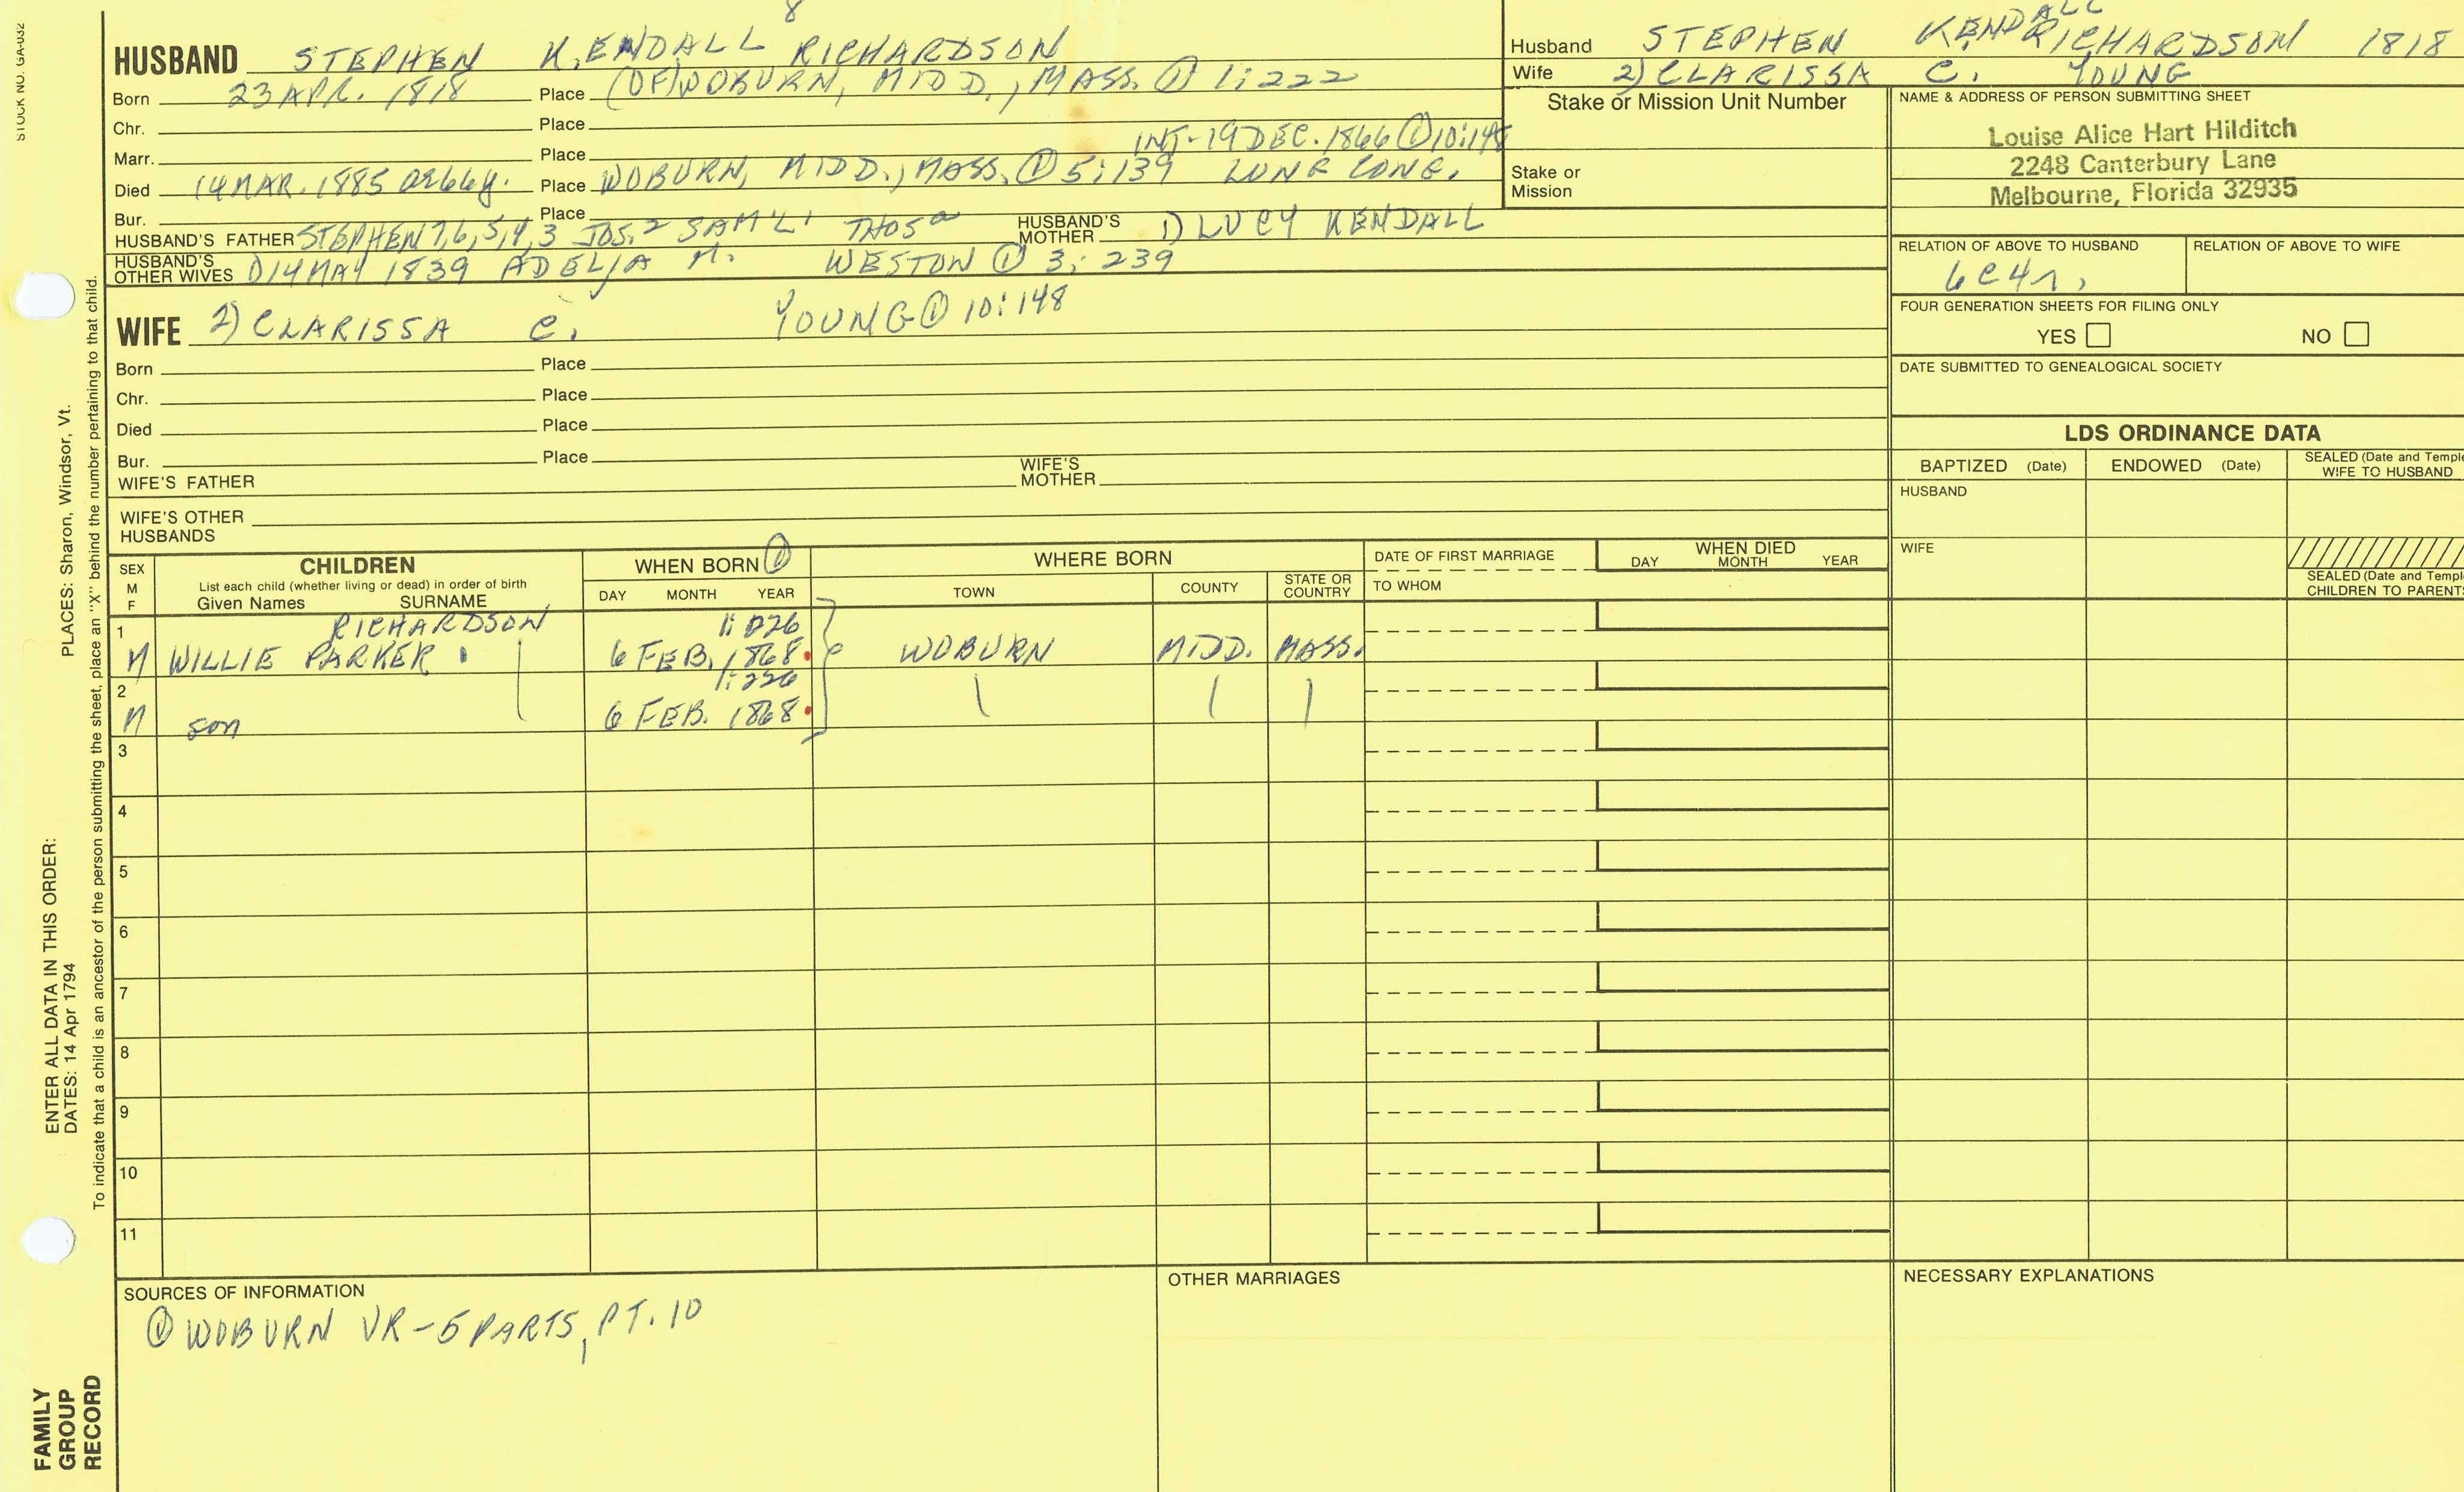 STOCK NO. GA-032
8
HUSBAND STEPHEN KENDALL RICHARDSON
Born 23 APR. 1818 Place (OF) WOBURN, MIDD., MASS. ① 1:222
Chr. Place
Marr. Place INT-19 DEC. 1866 ① 10:148
Died 14 MAR. 1885 ae 66y. Place WOBURN, MIDD., MASS. ① 5:139 LUNG CONG.
Bur. Place
HUSBAND'S FATHER STEPHEN 7,6,5,4,3 JOS.2 SAM'L1 THOS a HUSBAND'S MOTHER 1) LUCY KENDALL
HUSBAND'S OTHER WIVES 1) 14 MAY 1839 ADELIA M. WESTON ① 3:239
WIFE 2) CLARISSA C. YOUNG ① 10:148
Born Place
Chr. Place
Died Place
Bur. Place
WIFE'S FATHER WIFE'S MOTHER
WIFE'S OTHER HUSBANDS
Husband STEPHEN KENDALL RICHARDSON 1818
Wife 2) CLARISSA C. YOUNG
Stake or Mission Unit Number
Stake or Mission
NAME & ADDRESS OF PERSON SUBMITTING SHEET
Louise Alice Hart Hilditch
2248 Canterbury Lane
Melbourne, Florida 32935
RELATION OF ABOVE TO HUSBAND RELATION OF ABOVE TO WIFE
6C4r,
FOUR GENERATION SHEETS FOR FILING ONLY
YES NO
DATE SUBMITTED TO GENEALOGICAL SOCIETY
LDS ORDINANCE DATA
BAPTIZED (Date) ENDOWED (Date) SEALED (Date and Temple WIFE TO HUSBAND
HUSBAND
WIFE
SEALED (Date and Templ
CHILDREN TO PARENTS
SEX M F
CHILDREN
List each child (whether living or dead) in order of birth
Given Names SURNAME
WHEN BORN ①
DAY MONTH YEAR
WHERE BORN
TOWN COUNTY STATE OR COUNTRY
DATE OF FIRST MARRIAGE
TO WHOM
WHEN DIED
DAY MONTH YEAR
1 RICHARDSON 1:226
M WILLIE PARKER 6 FEB. 1868 WOBURN MIDD. MASS.
2 1:226
M son 6 FEB. 1868
3
4
5
6
7
8
9
10
11
SOURCES OF INFORMATION
① WOBURN VR - 5 PARTS, PT. 10
OTHER MARRIAGES
NECESSARY EXPLANATIONS
PLACES: Sharon, Windsor, Vt.
ENTER ALL DATA IN THIS ORDER:
DATES: 14 Apr 1794
To indicate that a child is an ancestor of the person submitting the sheet, place an "X" behind the number pertaining to that child.
FAMILY
GROUP
RECORD